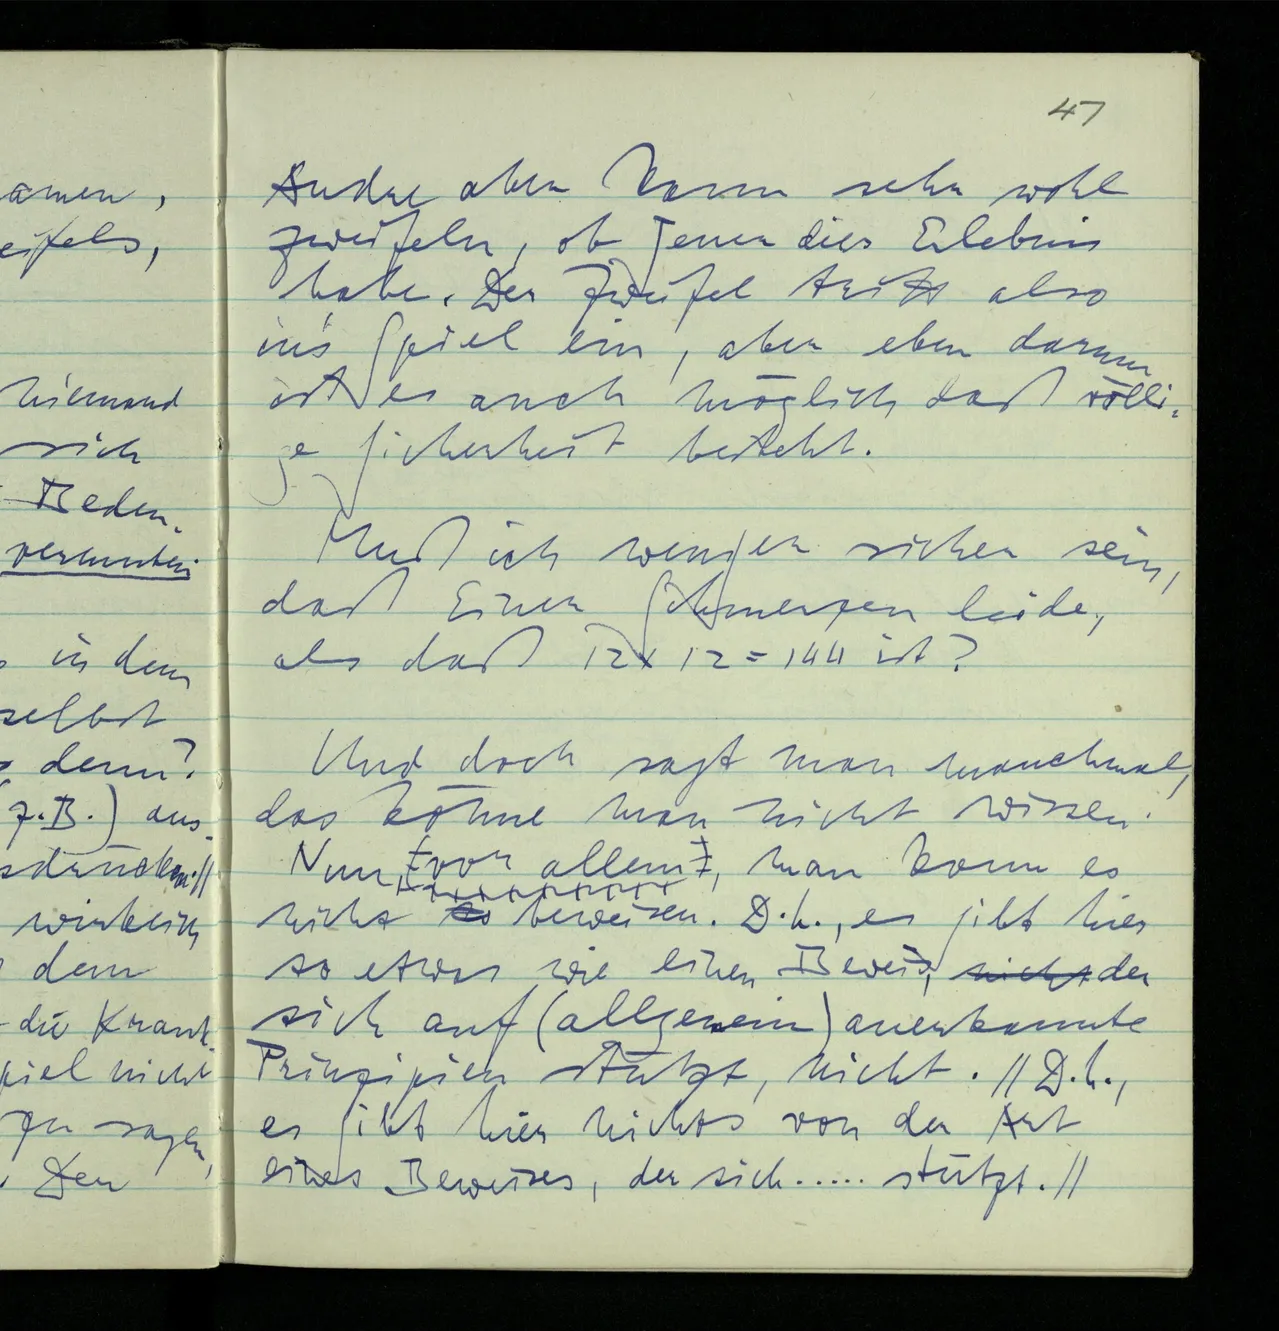 47
Andre aber kann sehr wohl
zweifeln, ob jener dies Erlebnis
habe. Der Zweifel tritt also
in's Spiel ein, aber eben darum
ist es auch möglich daß völli-
ge Sicherheit besteht.
Muß ich weniger sicher sein,
daß Einer Schmerzen leide,
als daß 12 x 12 = 144 ist?
Und doch sagt man manchmal,
das könne man nicht wissen.
Nun, [vor allem], man kann es
nicht so beweisen. D.h., es gibt hier
so etwas wie einen Beweis, nicht der
sich auf (allgemein) anerkannte
Prinzipien stützt, nicht. // D.h.,
es gibt hier nichts von der Art
eines Beweises, der sich ..... stützt. //
amen,
eifels,
niemand
sich
Bedeu-
vermuten
in dem
selbst
denn?
z.B.) aus-
sdrücken. //
wirklich
dem
die Krank-
piel nicht
zu sagen,
Den